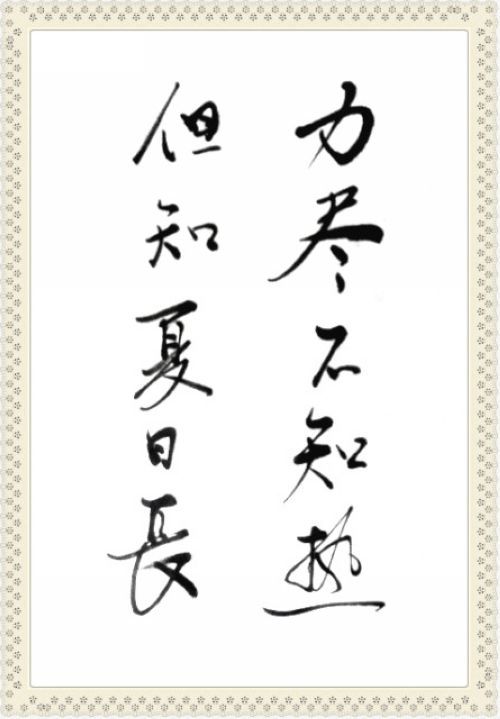 力尽不知热
但知夏日長